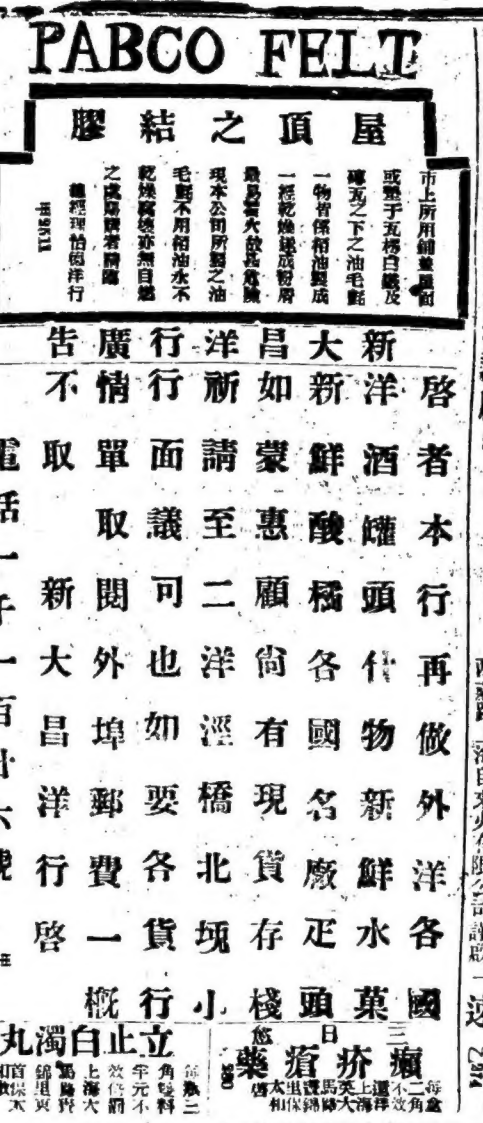 PABCO FELT
屋頂之結膠
市上所用鋪蓋屋面
或墊于瓦楞白鐵及
磚瓦之下之油毛氈
一物皆係柏油製成
一經乾燥遂成粉屑
最易着火故甚危險
現本公司所製之油
毛氈不用柏油水不
乾燥腐壞亦無自燃
之虞賜顧者請臨
總經理怡德洋行
新大昌洋行廣告
啓者本行再做外洋各國
洋酒罐頭什物新鮮水菓
新鮮酸橘各國名廠疋頭
如蒙惠顧尙有現貨存棧
祈請至二洋涇橋北堍小
行面議可也如要各貨行
情單取閱外埠郵費一概
不取 新大昌洋行啓
電話一千一百廿六號
三日
癩疥瘡藥
每盒
二角
不效
還洋
上海
英大
馬路
立止白濁丸